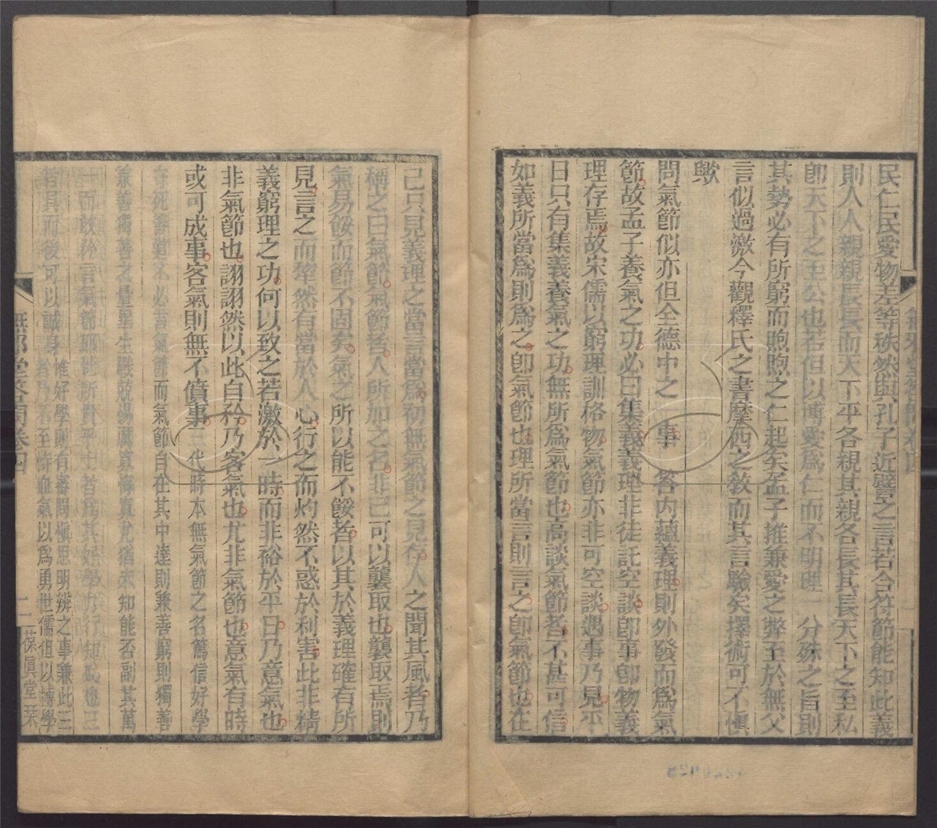 民仁民愛物差等秩然與孔子近譬之言若合符節能知此義
則人人親親長長而天下平各親其親各長其長天下之至私
即天下之至公也若但以博愛爲仁而不明理一分殊之旨則
其勢必有所窮而煦煦之仁起矣孟子推兼愛之弊至於無父
言似過激今觀釋氏之書摩西之敎而其言驗矣擇術可不愼
歟
問氣節似亦但全德中之一事 答內蘊義理則外發而爲氣
節故孟子養氣之功必曰集義義理非徒託空談即事即物義
理存焉故宋儒以窮理訓格物氣節亦非可空談遇事乃見平
日只有集義養氣之功無所爲氣節也高談氣節者不甚可信
如義所當爲則爲之即氣節也理所當言則言之即氣節也在
己只見義理之當言當爲初無氣節之見存人之聞其風者乃
稱之曰氣節氣節者人所加之名非己可以襲取也襲取焉則
氣易餒而節不固矣氣之所以能不餒者以其於義理確有所
見言之而犂然有當於人心行之而灼然不惑於利害此非精
義窮理之功何以致之若激於一時而非裕於平日乃意氣也
非氣節也詡詡然以此自矜乃客氣也尤非氣節也意氣有時
或可成事客氣則無不僨事三代時本無氣節之名篤信好學
守死善道不必言氣節而氣節自在其中達則兼善窮則獨善
無邪堂答問卷四
二
葆眞堂栞